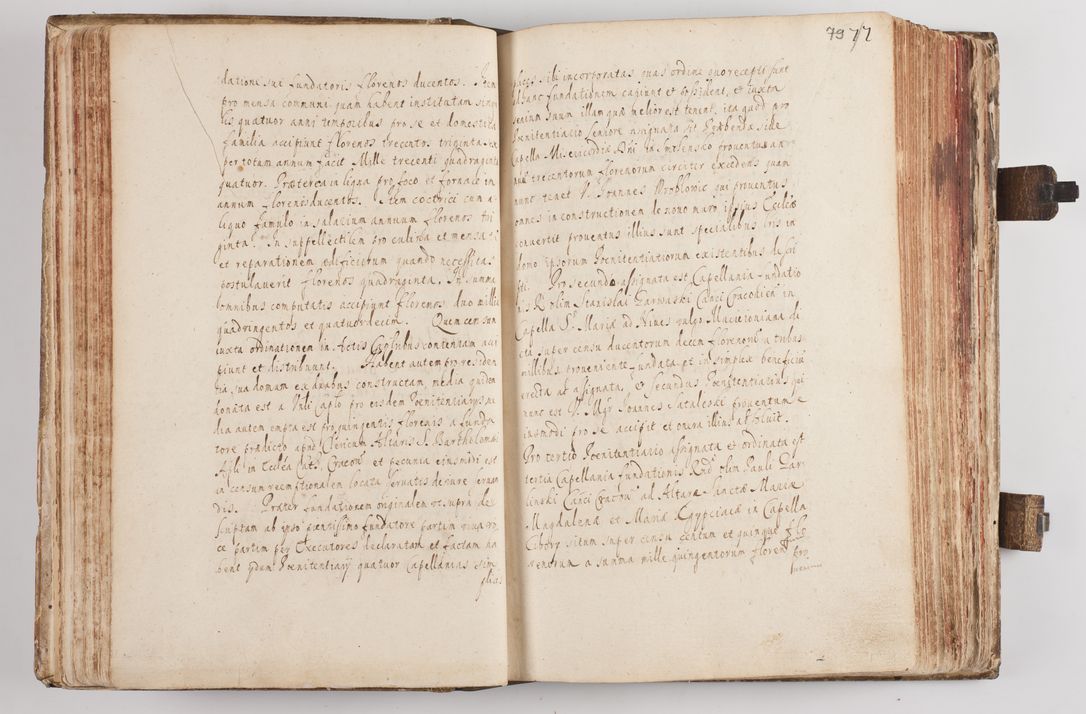 datione sui fundatoris florenos ducentos. Item
pro mensa communi quam habent institutam singu
lis quatuor anni temporibus pro se et domestica
familia accipiunt florenos trecentos triginta sex
per totum annum facit Mille trecenti quadraginta
quatuor. Præterea in ligna pro foco et fornace in
annum florenos ducentos. Item coctrici cum a
liquo famulo in salarium annuum florenos tri
ginta. In suppellectilem pro culina et mensa
et reparationem ædificiorum quando necessitas
postulaverit florenos quadraginta. In summa
omnibus computatis accipiunt florenos duo millia
quadringentos et quatuordecim. Quem censum
iuxta ordinationem in Actis Caplaribus contentam acci
piunt et distribuunt. Habent autem pro residen
tia sua domum ex duabus constructam, media quidem
donata est a Vnli Caplo pro eisdem Pœnitentiarijs me
dia autem empta est pro quingentis florenis a funda
tore prædicto apud Clericum Altaris S. Bartholomæi
Apli in Ecclea Cath. Cracoun et pecunia eiusmodi est
in censum reemptionalem locata servatis de iure servan
dis. Præter fundationem originalem et supra de
scriptam ab ipso fundatore partim viva vo
ce partim per Executores declaratam et factam ha
bent ijdem Pœnitentiarij quatuor Capellanias sim
plices

79 77
plices sibi incorporatas quas ordine quo recepti sunt
ad hanc fundationem capiunt et possident, et iuxta
senium suum illam quæ melior est tenent, ita quod pro
Pœnitentiario seniore assignata sit Præbenda sive
Capella Misericordiæ Dni in proventus an
nui trecentorum florenorum circiter excedens quam
nunc tenet V. Joannes Wroblowic sui proventus
omnes in constructionem de novo muro ipsius Ecclæ
convertit proventus illius sunt specialibus in
domo ipsorum Pœnitentiariorum existentibus descri
pti. Pro secundo assignata est Capellania fundatio
nis R. olim Stanislai Zarnaski Canci Cracovien in
Capella S. Mariæ ad Nives vulgo Maciejoviana di
cta super censu ducentorum decem florenorum a tribus
millibus proveniente fundata et in simplex beneficium
erecta ac assignata, et secundus Pœnitentiarius qui
nunc est V. Mgr Joannes Sataleski proventum e
iusmodi pro se accipit et onera illius absoluit.
Pro tertio Pœnitentiario assignata et ordinata est
tertia Capellania fundationis Rnd olim Pauli Dar
linski Canci Cracoun ad Altare Sanctæ Mariæ
Magdalenæ et Mariæ Egypciacæ in Capella
Ciborij situm super censu centum et quinque flo
renorum a summa mille quingentorum floren pro